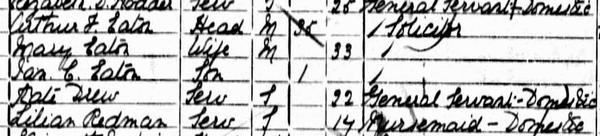 Serv S 26 General Servant - Domestic
Arthur F. Eaton Head M 35 Solicitor
Mary Eaton Wife M 33
Ian C. Eaton Son 1
Kate Drew Serv S 22 General Servant - Domestic
Lilian Redman Serv S 17 Nursemaid - Domestic